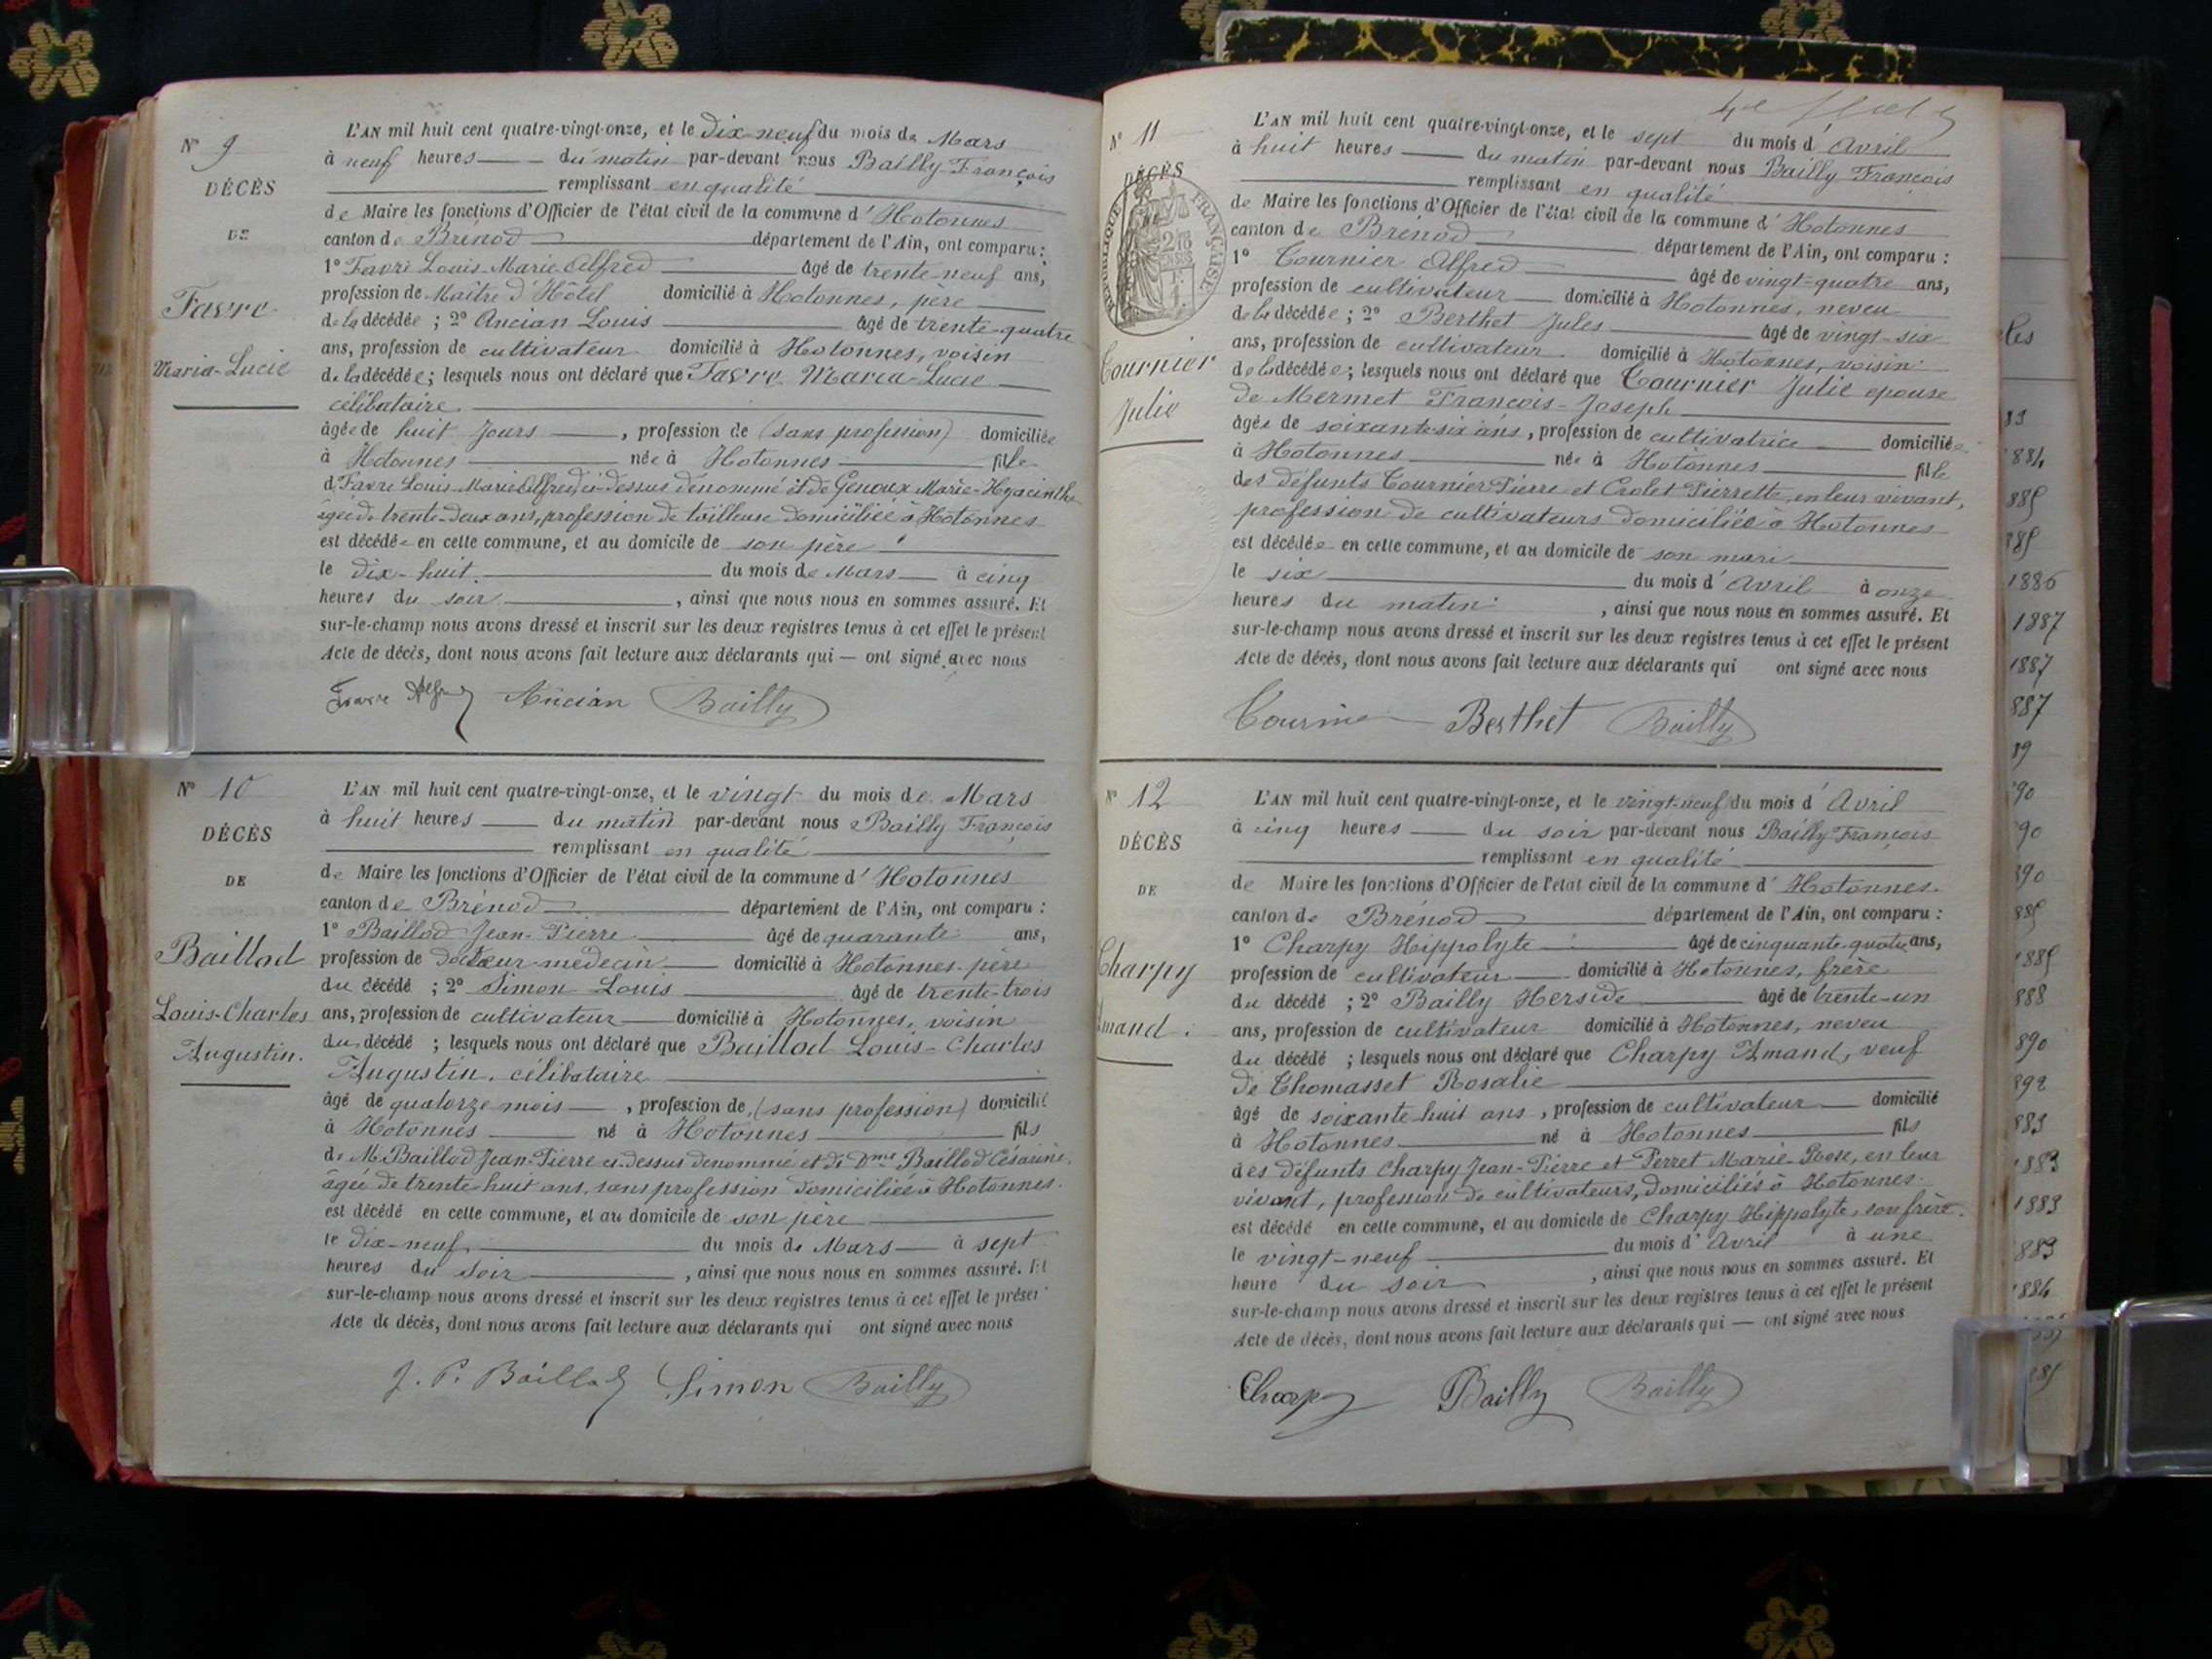 N° 9
DÉCÈS
DE
Favre
Maria-Lucie
L'AN mil huit cent quatre-vingt-onze, et le Dix-neuf du mois de Mars
à neuf heures du matin par-devant nous Bailly François
remplissant en qualité
de Maire les fonctions d'Officier de l'état civil de la commune d'Hotonnes
canton de Brénod département de l'Ain, ont comparu :
1° Favre Louis-Marie Alfred âgé de trente-neuf ans,
profession de Maître d'Hôtel domicilié à Hotonnes, père
de la décédée ; 2° Ancian Louis âgé de trente-quatre
ans, profession de cultivateur domicilié à Hotonnes, voisin
de la décédée ; lesquels nous ont déclaré que Favre Maria-Lucie
célibataire
âgée de huit jours , profession de (sans profession) domiciliée
à Hotonnes née à Hotonnes fille
de Favre Louis-Marie Alfred ci-dessus dénommé et de Genoux Marie-Hyacinthe
âgée de trente-deux ans, profession de tailleuse domiciliée à Hotonnes
est décédée en cette commune, et au domicile de son père
le dix-huit. du mois de Mars à cinq
heures du soir , ainsi que nous nous en sommes assuré. Et
sur-le-champ nous avons dressé et inscrit sur les deux registres tenus à cet effet le présent
Acte de décès, dont nous avons fait lecture aux déclarants qui — ont signé avec nous
Favre Alfred Ancian Bailly
N° 10
DÉCÈS
DE
Baillod
Louis-Charles
Augustin.
L'AN mil huit cent quatre-vingt-onze, et le vingt du mois de Mars
à huit heures du matin par-devant nous Bailly François
remplissant en qualité
de Maire les fonctions d'Officier de l'état civil de la commune d'Hotonnes
canton de Brénod département de l'Ain, ont comparu :
1° Baillod Jean-Pierre âgé de quarante ans,
profession de docteur-médecin domicilié à Hotonnes père
du décédé ; 2° Simon Louis âgé de trente-trois
ans, profession de cultivateur domicilié à Hotonnes, voisin
du décédé ; lesquels nous ont déclaré que Baillod Louis-Charles
Augustin. célibataire
âgé de quatorze mois , profession de (sans profession) domicilié
à Hotonnes né à Hotonnes fils
de M. Baillod Jean-Pierre ci-dessus dénommé et de Dme Baillod Césarine,
âgée de trente-huit ans, sans profession domiciliée à Hotonnes.
est décédé en cette commune, et au domicile de son père
le dix-neuf du mois de Mars à sept
heures du soir , ainsi que nous nous en sommes assuré. Et
sur-le-champ nous avons dressé et inscrit sur les deux registres tenus à cet effet le présen
Acte de décès, dont nous avons fait lecture aux déclarants qui ont signé avec nous
J. P. Baillod Simon Bailly
N° 11
DÉCÈS
RÉPUBLIQUE FRANÇAISE
Tournier
Julie
L'AN mil huit cent quatre-vingt-onze, et le sept du mois d'Avril
à huit heures du matin par-devant nous Bailly François
remplissant en qualité
de Maire les fonctions d'Officier de l'état civil de la commune d'Hotonnes
canton de Brénod département de l'Ain, ont comparu :
1° Tournier Alfred âgé de vingt-quatre ans,
profession de cultivateur domicilié à Hotonnes, neveu
de la décédée ; 2° Berthet Jules âgé de vingt-six
ans, profession de cultivateur domicilié à Hotonnes, voisin
de la décédée ; lesquels nous ont déclaré que Tournier Julie épouse
de Mermet François-Joseph
âgée de soixante-six ans, profession de cultivatrice domiciliée
à Hotonnes née à Hotonnes fille
des défunts Tournier Pierre et Crolet Pierrette, en leur vivant,
profession de cultivateurs domiciliés à Hotonnes
est décédée en cette commune, et au domicile de son mari
le six du mois d'Avril à onze
heures du matin , ainsi que nous nous en sommes assuré. Et
sur-le-champ nous avons dressé et inscrit sur les deux registres tenus à cet effet le présent
Acte de décès, dont nous avons fait lecture aux déclarants qui ont signé avec nous
Tournier Berthet Bailly
N° 12
DÉCÈS
DE
Charpy
Amand.
L'AN mil huit cent quatre-vingt-onze, et le vingt-neuf du mois d'Avril
à cinq heures du soir par-devant nous Bailly François
remplissant en qualité
de Maire les fonctions d'Officier de l'état civil de la commune d'Hotonnes.
canton de Brénod département de l'Ain, ont comparu :
1° Charpy Hippolyte âgé de cinquante-quatre ans,
profession de cultivateur domicilié à Hotonnes, frère
du décédé ; 2° Bailly Herside âgé de trente-un
ans, profession de cultivateur domicilié à Hotonnes, neveu
du décédé ; lesquels nous ont déclaré que Charpy Amand, veuf
de Thomasset Rosalie
âgé de soixante-huit ans, profession de cultivateur domicilié
à Hotonnes né à Hotonnes fils
des défunts Charpy Jean-Pierre et Perret Marie-Rose, en leur
vivant, profession de cultivateurs, domiciliés à Hotonnes.
est décédé en cette commune, et au domicile de Charpy Hippolyte, son frère.
le vingt-neuf du mois d'Avril à une
heure du soir , ainsi que nous nous en sommes assuré. Et
sur-le-champ nous avons dressé et inscrit sur les deux registres tenus à cet effet le présent
Acte de décès, dont nous avons fait lecture aux déclarants qui — ont signé avec nous
Charpy Bailly Bailly
les
83
884
885
885
1886
1887
1887
887
89
90
90
890
885
1885
888
890
892
883
1883
1883
883
1884
885